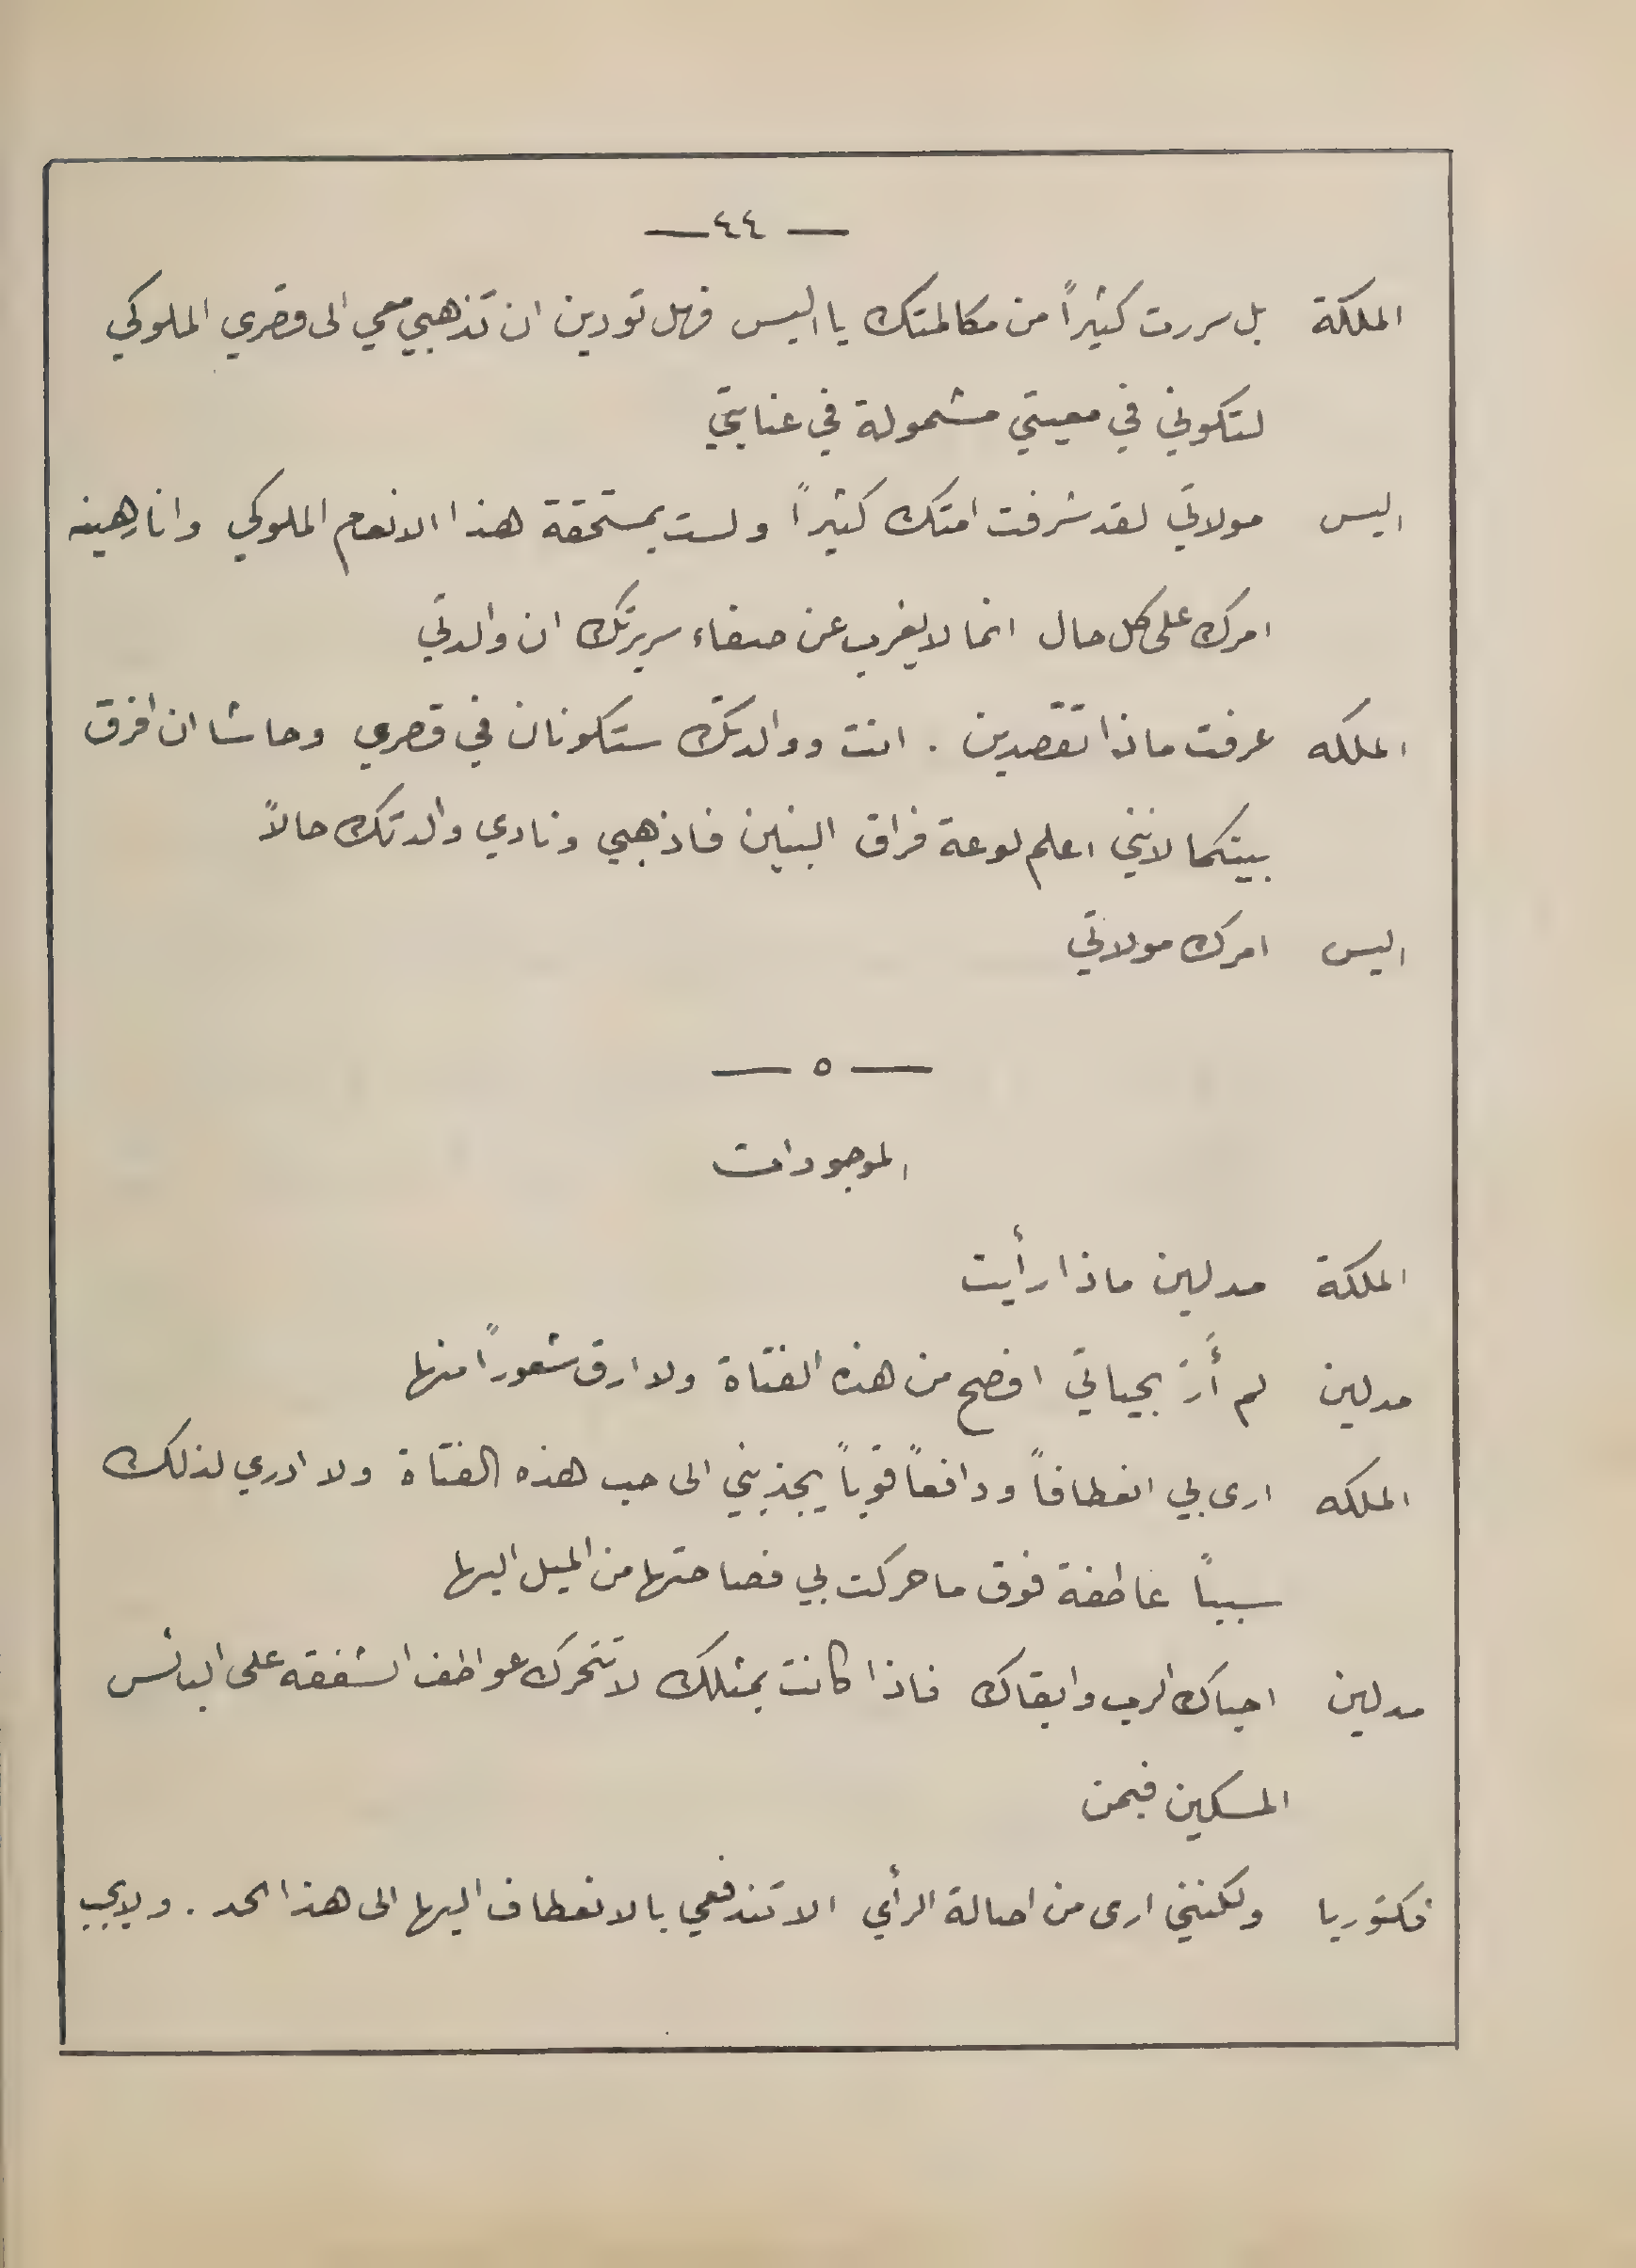 — ٤٤ —
الملكة بل سررت كثيراً من مكالمتك يا اليس فهل تودين ان تذهبي معي الى قصري الملوكي
لتكوني في معيتي مشمولة في عنايتي
اليس مولاتي لقد شرفت امتك كثيراً ولست بمستحقة هذا الانعام الملوكي وانا رهينه
امرك على كل حال انما لا يغرب عن صفاء سريرتك ان والدتي
الملكه عرفت ماذا تقصدين . انت ووالدتك ستكونان في قصري وحاشا ان افرق
بينكما لانني اعلم لوعة فراق البنين فاذهبي ونادي والدتك حالاً
اليس امرك مولاتي
— ٥ —
الموجودات
الملكة مدلين ماذا رأيت
مدلين لم أرَ بحياتي افصح من هذه الفتاة ولا ارق شعوراً منها
الملكه ارى بي انعطافاً ودافعاً قوياً يجذبني الى حب هذه الفتاة ولا ادري لذلك
سبباً عاطفة فوق ما حركت بي فصاحتها من الميل اليها
مدلين احياك الرب وابقاك فاذا كانت بمثلك لا تتحرك عواطف الشفقه على البائس
المسكين فبمن
فكتوريا ولكنني ارى من اصالة الرأي الا تندفعي بالانعطاف اليها الى هذا الحد . ولا يجب